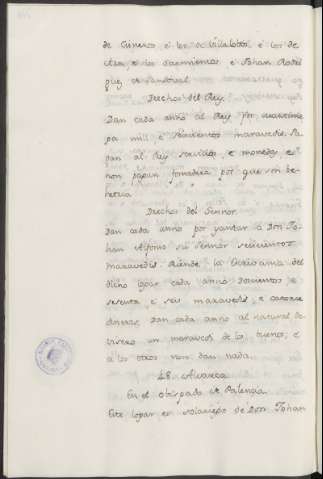 de Cisneros e los de Villalobos, e los de
Asa, e los Sarmientos e Johan Rodri
guez de Sandoval.
Derechos del Rey.
Dan cada anno al Rey por
pa mill e seiscientos maravedis. Pa
gan al Rey servicios, e monedas, e
non pagan fonsadera, por que son be
hetria
Derechos del Sennor
Dan cada anno por yantar a Don Jo
han Alfonso su Sennor seiscientos
maravedis. Riende la
dicho logar cada anno docientos e
sesenta e seis maravedis, e catorce
dineros, dan cada anno al natural de
visero un maravedi de los buenos, e
a los otros non dan nada.
48.
En el obispado de Palencia
Este logar es solariego de Don Johan